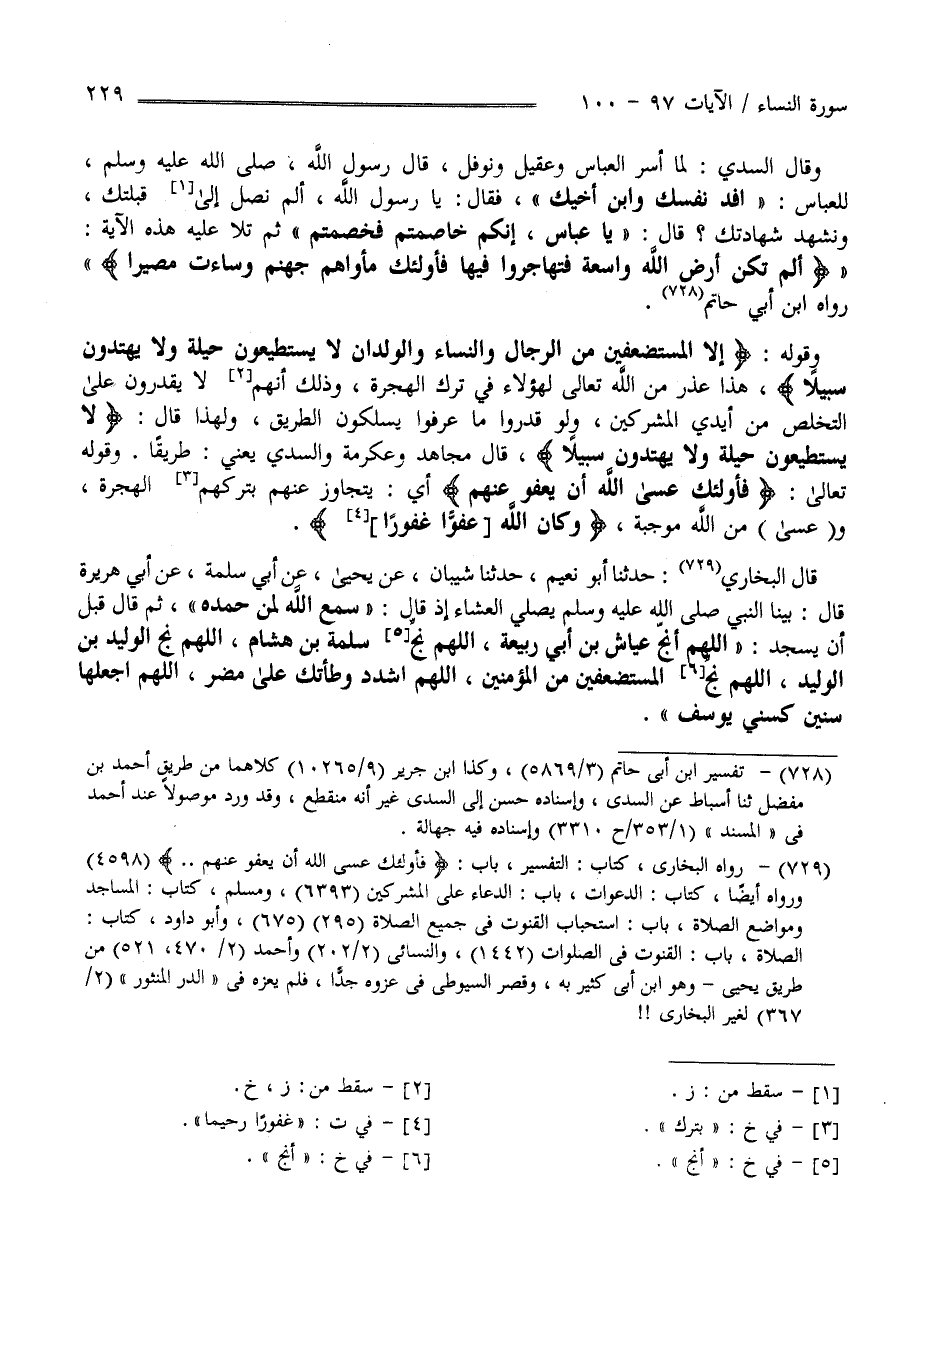 سورة النساء / الآيات ٩٧ - ١٠٠ ٢٢٩
وقال السدي : لما أسر العباس وعقيل ونوفل ، قال رسول اللَّه ، صلى الله عليه وسلم ،
للعباس : « افد نفسك وابن أخيك » ، فقال : يا رسول اللَّه ، ألم نصل إلىٰ[١] قبلتك ،
ونشهد شهادتك ؟ قال : « يا عباس ، إنكم خاصمتم فخصمتم » ثم تلا عليه هذه الآية :
« ﴿ ألم تكن أرض اللَّه واسعة فتهاجروا فيها فأولئك مأواهم جهنم وساءت مصيرا ﴾ »
رواه ابن أبي حاتم(٧٢٨) .
وقوله : ﴿ إلا المستضعفين من الرجال والنساء والولدان لا يستطيعون حيلة ولا يهتدون
سبيلًا ﴾ ، هذا عذر من اللَّه تعالى لهؤلاء في ترك الهجرة ، وذلك أنهم[٢] لا يقدرون علىٰ
التخلص من أيدي المشركين ، ولو قدروا ما عرفوا يسلكون الطريق ، ولهذا قال : ﴿ لا
يستطيعون حيلة ولا يهتدون سبيلًا ﴾ ، قال مجاهد وعكرمة والسدي يعني : طريقًا . وقوله
تعالىٰ : ﴿ فأولئك عسىٰ اللَّه أن يعفو عنهم ﴾ أي : يتجاوز عنهم بتركهم[٣] الهجرة ،
و( عسىٰ ) من اللَّه موجبة ، ﴿ وكان اللَّه [عفوًّا غفورًا ][٤] ﴾ .
قال البخاري(٧٢٩) : حدثنا أبو نعيم ، حدثنا شيبان ، عن يحيىٰ ، عن أبي سلمة ، عن أبي هريرة
قال : بينا النبي صلى الله عليه وسلم يصلي العشاء إذ قال : « سمع اللَّه لمن حمده » ، ثم قال قبل
أن يسجد : « اللهم أنجِ عياش بن أبي ربيعة ، اللهم نجِّ[٥] سلمة بن هشام ، اللهم نج الوليد بن
الوليد ، اللهم نجِّ[٦] المستضعفين من المؤمنين ، اللهم اشدد وطأتك علىٰ مضر ، اللهم اجعلها
سنين كسني يوسف » .
(٧٢٨) - تفسير ابن أبى حاتم (٥٨٦٩/٣) ، وكذا ابن جرير (١٠٢٦٥/٩) كلاهما من طريق أحمد بن
مفضل ثنا أسباط عن السدى ، وإسناده حسن إلى السدى غير أنه منقطع ، وقد ورد موصولاً عند أحمد
فى « المسند » (٣٥٣/١/ح ٣٣١٠) وإسناده فيه جهالة .
(٧٢٩) - رواه البخارى ، كتاب : التفسير ، باب : ﴿ فأولئك عسى الله أن يعفو عنهم .. ﴾ (٤٥٩٨)
ورواه أيضًا ، كتاب : الدعوات ، باب : الدعاء على المشركين (٦٣٩٣) ، ومسلم ، كتاب : المساجد
ومواضع الصلاة ، باب : استحباب القنوت فى جميع الصلاة (٢٩٥) (٦٧٥) ، وأبو داود ، كتاب :
الصلاة ، باب : القنوت فى الصلوات (١٤٤٢) ، والنسائى (٢٠٢/٢) وأحمد (٢/ ٤٧٠، ٥٢١) من
طريق يحيى - وهو ابن أبى كثير به ، وقصر السيوطى فى عزوه جدًّا ، فلم يعزه فى « الدر المنثور » (٢/
٣٦٧) لغير البخارى !!
[١] - سقط من : ز . [٢] - سقط من: ز ، خ.
[٣] - في خ : « بترك » . [٤] - في ت : «غفورًا رحيما» .
[٥] - في خ : « أنج » . [٦] - في خ : « أنج » .